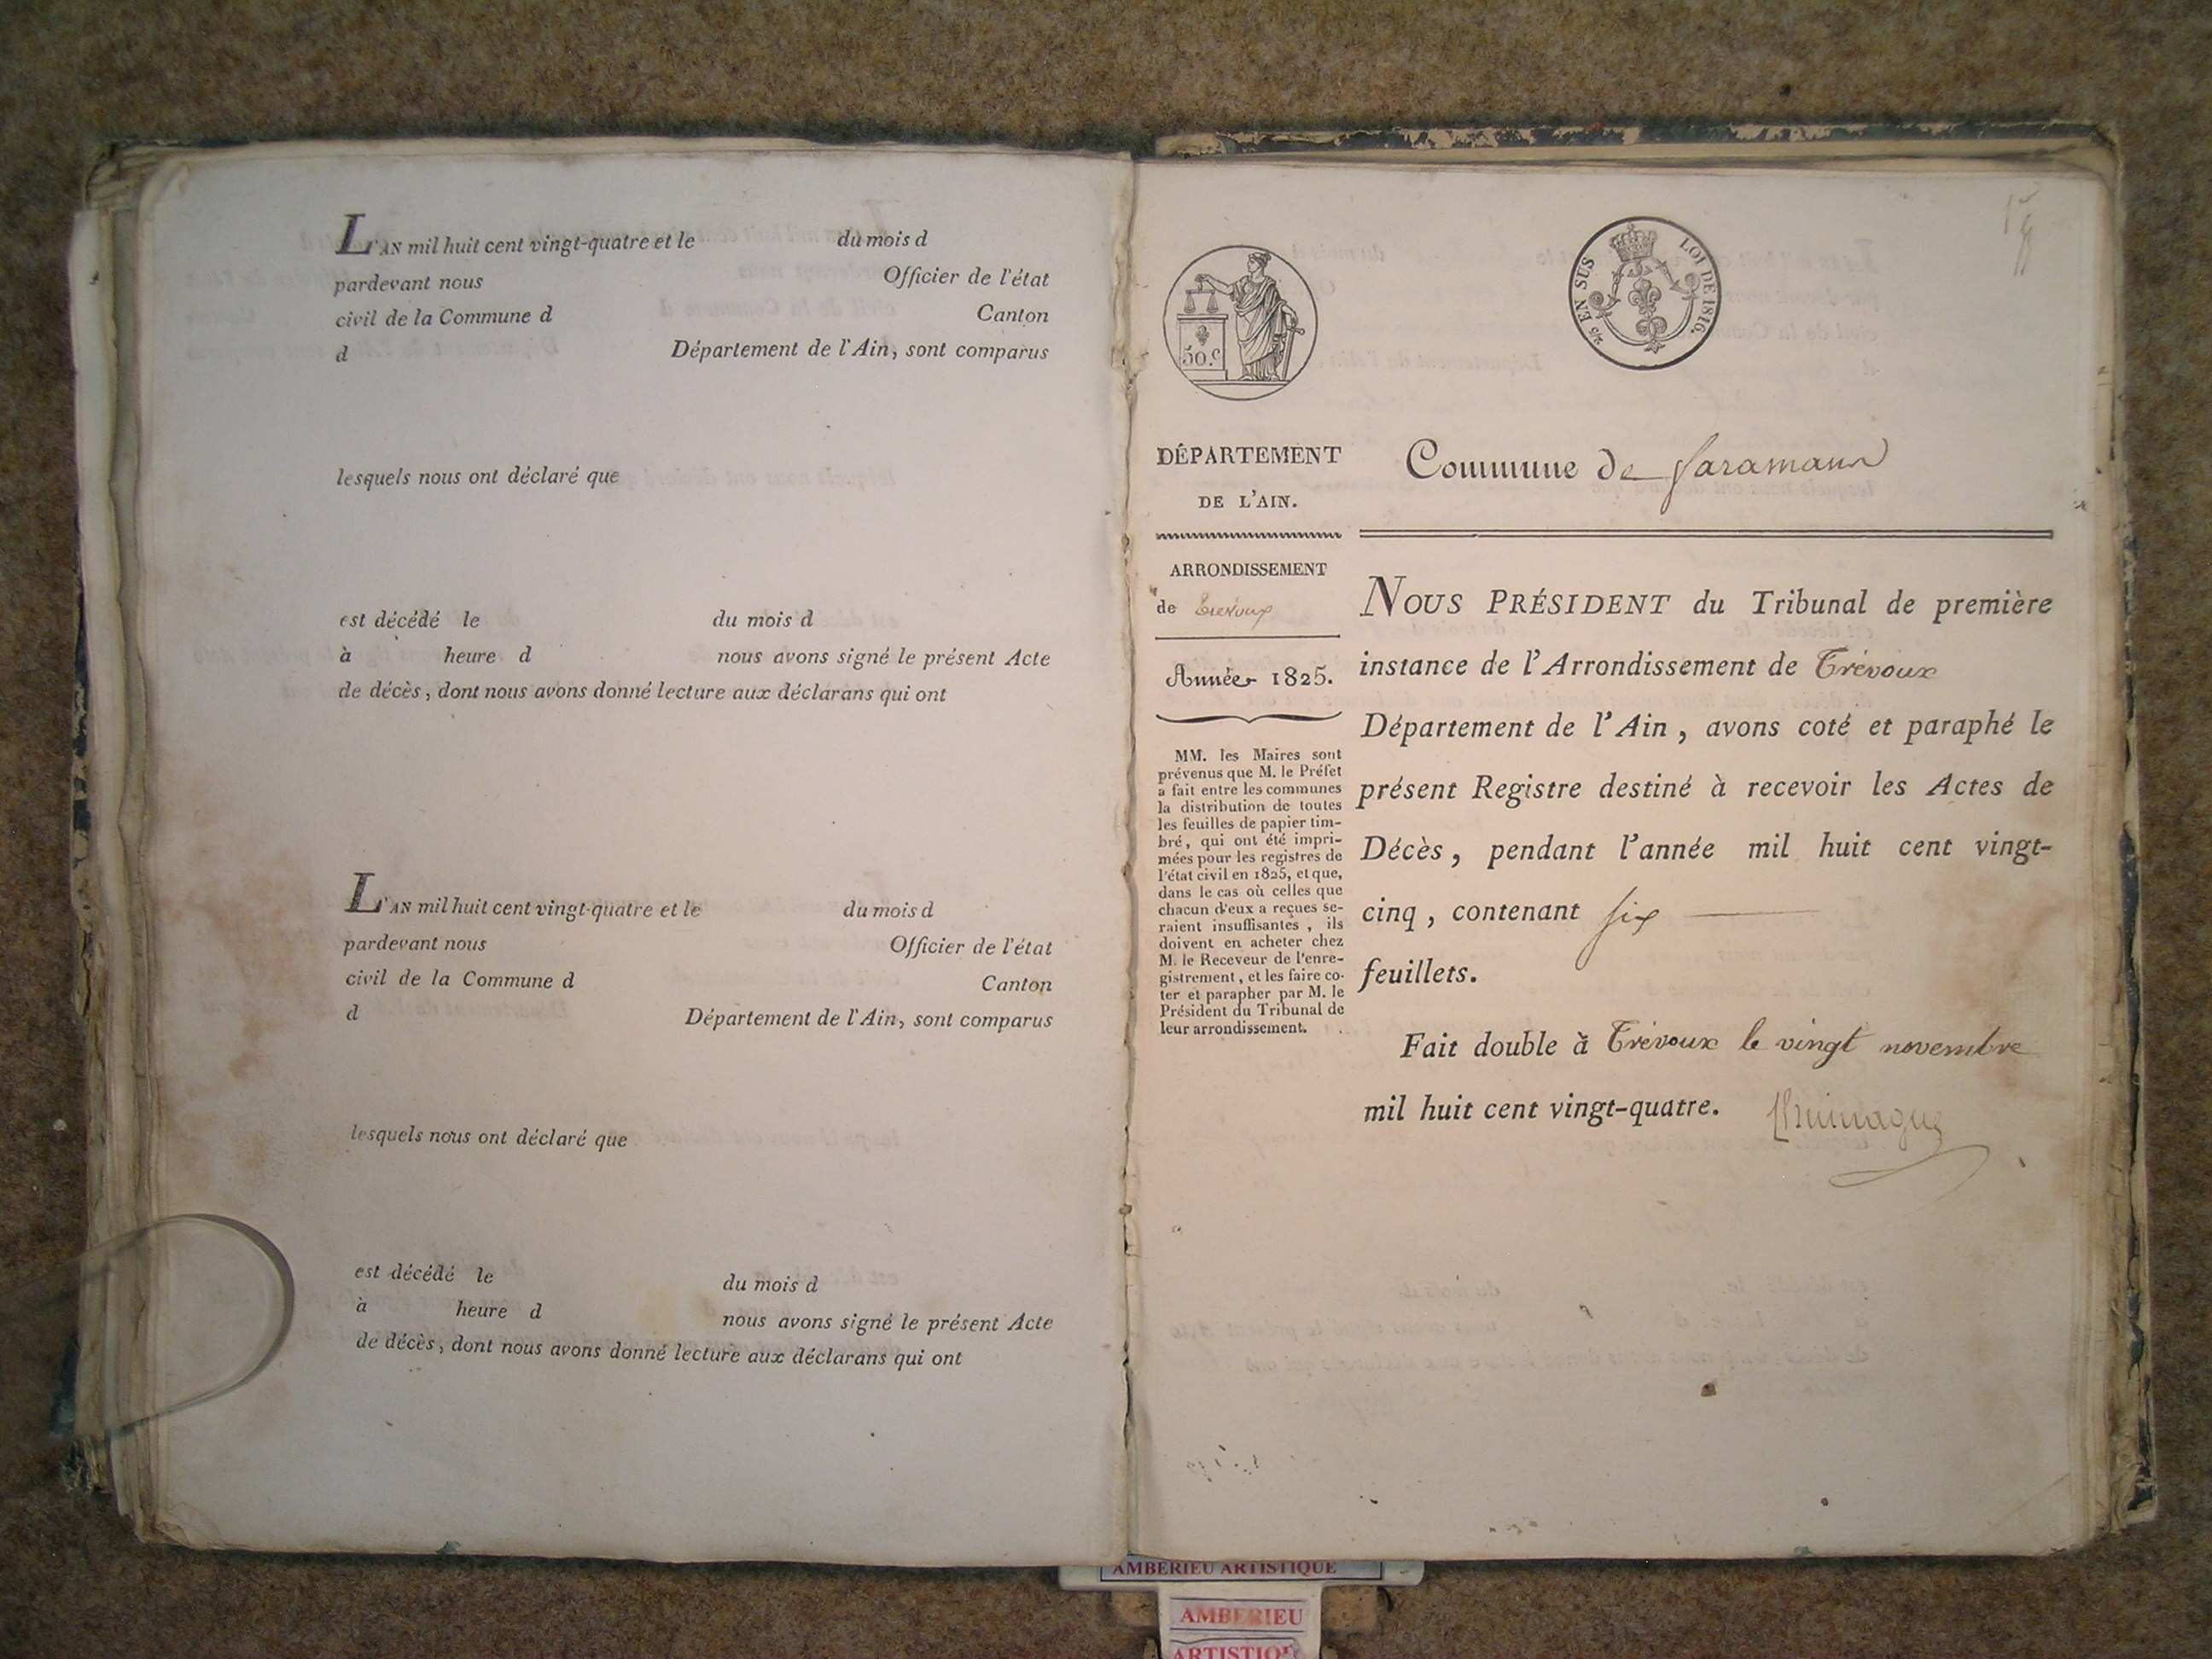 L'AN mil huit cent vingt-quatre et le du mois d
pardevant nous Officier de l'état
civil de la Commune d Canton
d Département de l'Ain, sont comparus
lesquels nous ont déclaré que
est décédé le du mois d
à heure d nous avons signé le présent Acte
de décès, dont nous avons donné lecture aux déclarans qui ont
L'AN mil huit cent vingt-quatre et le du mois d
pardevant nous Officier de l'état
civil de la Commune d Canton
d Département de l'Ain, sont comparus
lesquels nous ont déclaré que
est décédé le du mois d
à heure d nous avons signé le présent Acte
de décès, dont nous avons donné lecture aux déclarans qui ont
50 c
EN SUS LOI DE 1816.
DÉPARTEMENT
DE L'AIN.
ARRONDISSEMENT
de Trévoux
Année 1825.
MM. les Maires sont
prévenus que M. le Préfet
a fait entre les communes
la distribution de toutes
les feuilles de papier tim-
bré, qui ont été impri-
mées pour les registres de
l'état civil en 1825, et que,
dans le cas où celles que
chacun d'eux a reçues se-
raient insuffisantes, ils
doivent en acheter chez
M. le Receveur de l'enre-
gistrement, et les faire co-
ter et parapher par M. le
Président du Tribunal de
leur arrondissement.
Commune de Faramans
NOUS PRÉSIDENT du Tribunal de première
instance de l'Arrondissement de Trévoux
Département de l'Ain, avons coté et paraphé le
présent Registre destiné à recevoir les Actes de
Décès, pendant l'année mil huit cent vingt-
cinq, contenant six
feuillets.
Fait double à Trévoux le vingt novembre
mil huit cent vingt-quatre.
AMBERIEU ARTISTIQUE
AMBERIEU
ARTISTIQUE